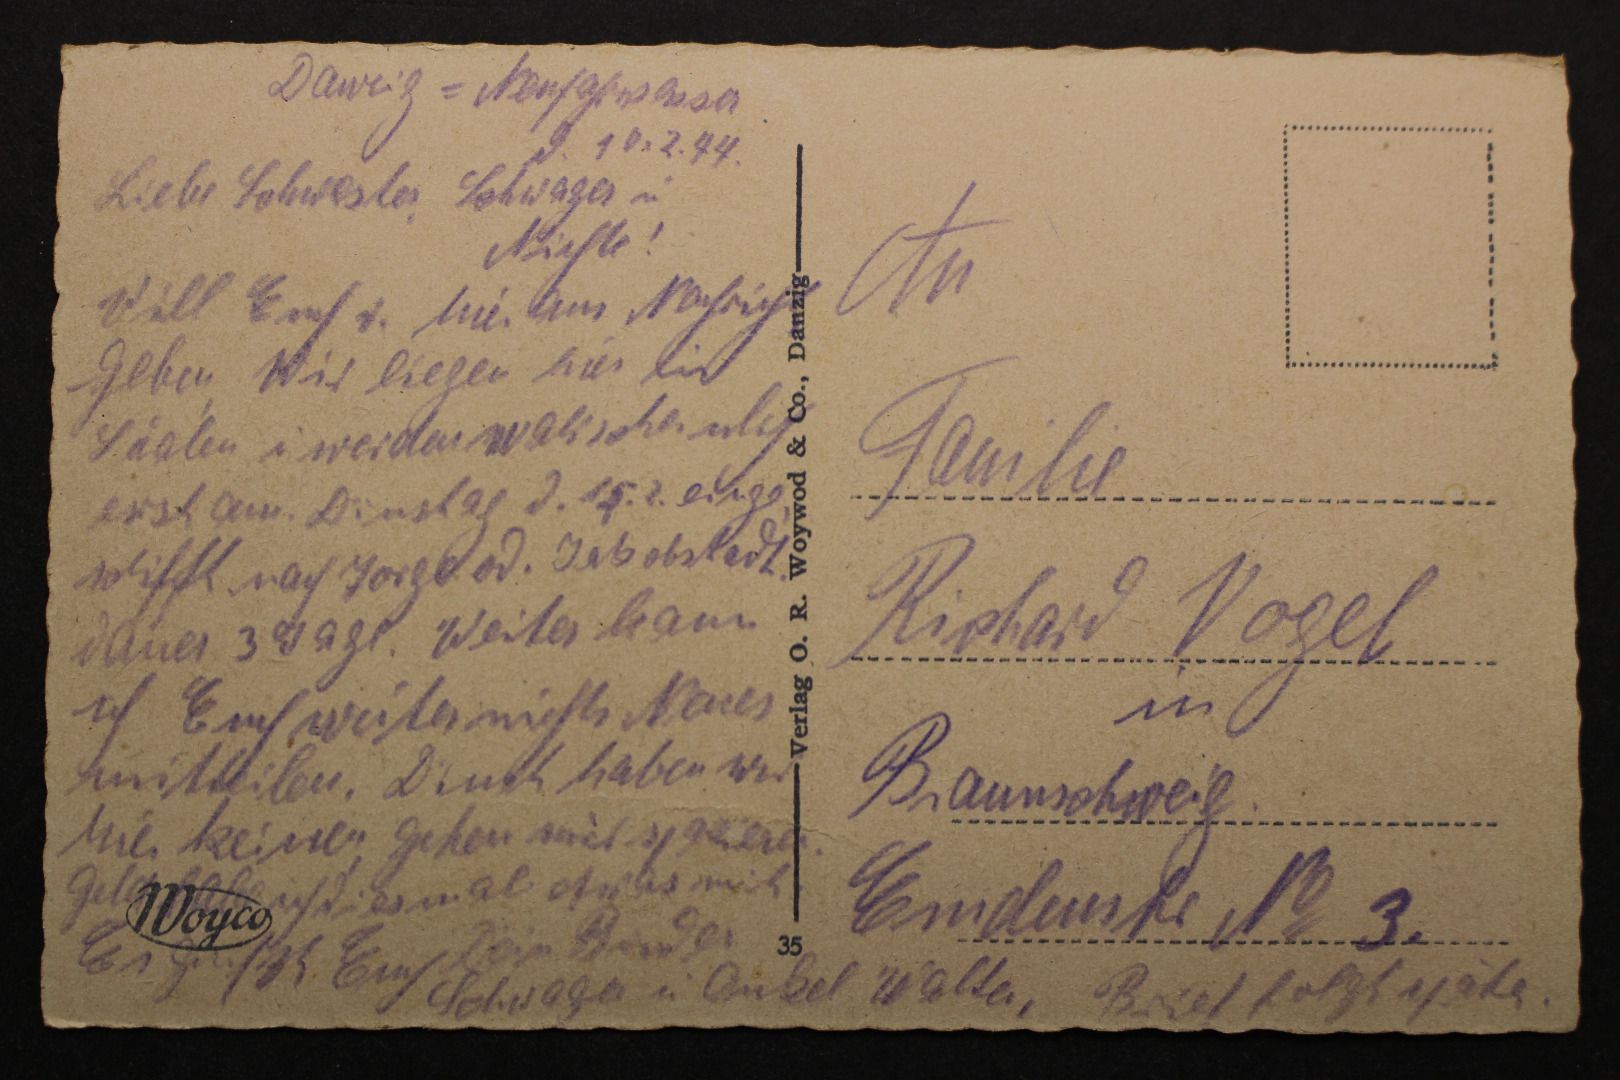 Danzig = Neufahrwasser
d. 10.2.44.
Liebe Schwester, Schwager u
Nichte!
Will Euch v. hier aus Nachricht
geben. Wir liegen hier in
Säälen u werden warscheinlich
erst am Dienstag d. 15.2. einge
schifft nach od. Jakobstadt.
dauer 3 Tage. Weiter kann
ich Euch weiter nichts Neues
mitteilen. Dienst haben wir
hier keinen, gehen mit spazieren.
Geld habe ich diesmal etwas mit.
Es grüßt Euch Dein Bruder
Schwager u Onkel Walter, Brief folgt später.
Woyco
Verlag O. R. Woywod & Co., Danzig
35
An
Familie
Richard Vogel
in
Braunschweig.
Emdenstr No 3.